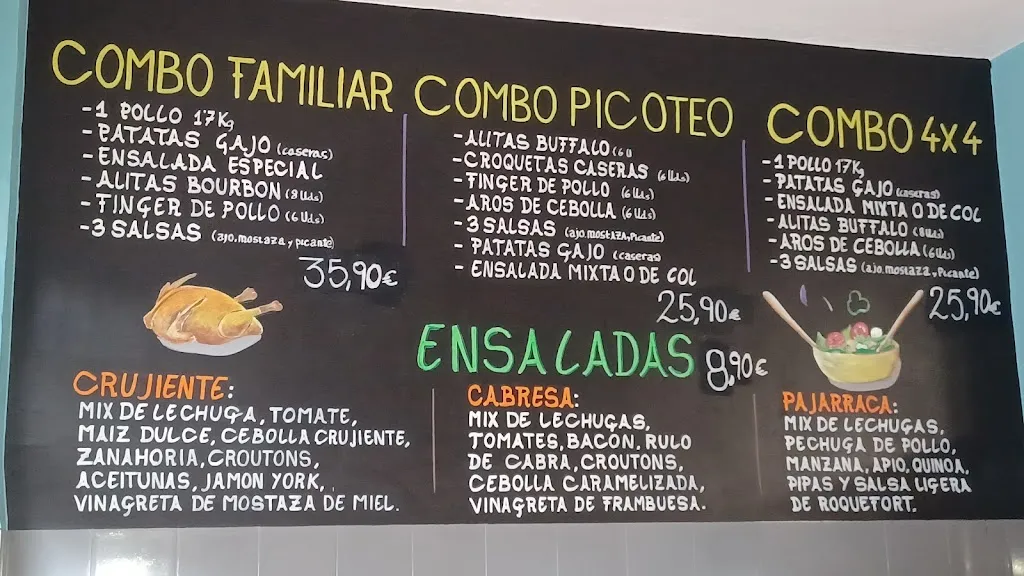 COMBO FAMILIAR
-1 POLLO 17Kg
-PATATAS GAJO (caseras)
-ENSALADA ESPECIAL
-ALITAS BOURBON (8 Uds)
-FINGER DE POLLO (6 Uds)
-3 SALSAS (ajo, mostaza y picante)
35,90€
COMBO PICOTEO
-ALITAS BUFFALO (6 U
-CROQUETAS CASERAS (6 Uds)
-FINGER DE POLLO (6 Uds)
-AROS DE CEBOLLA (6 Uds)
-3 SALSAS (ajo, mostaza, Picante)
- PATATAS GAJO (caseras)
- ENSALADA MIXTA O DE COL
25,90€
COMBO 4x4
-1 POLLO 17Kg
-PATATAS GAJO (caseras)
-ENSALADA MIXTA O DE COL
-ALITAS BUFFALO (8 Uds)
-AROS DE CEBOLLA (6 Uds)
-3 SALSAS (ajo, mostaza, y Picante)
25,90€
ENSALADAS 8,90€
CRUJIENTE:
MIX DE LECHUGA, TOMATE,
MAIZ DULCE, CEBOLLA CRUJIENTE,
ZANAHORIA, CROUTONS,
ACEITUNAS, JAMON YORK,
VINAGRETA DE MOSTAZA DE MIEL.
CABRESA:
MIX DE LECHUGAS,
TOMATES, BACON, RULO
DE CABRA, CROUTONS,
CEBOLLA CARAMELIZADA,
VINAGRETA DE FRAMBUESA.
PAJARRACA:
MIX DE LECHUGAS,
PECHUGA DE POLLO,
MANZANA, APIO, QUINOA,
PIPAS Y SALSA LIGERA
DE ROQUEFORT.